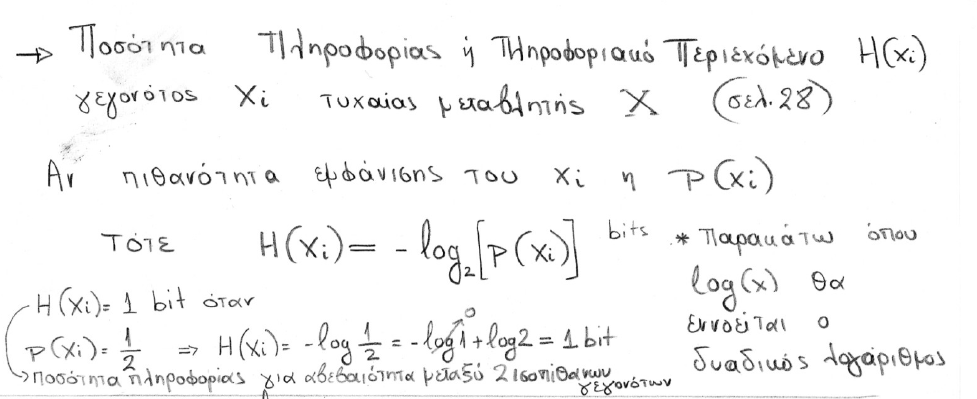 → Ποσότητα Πληροφορίας ή Πληροφοριακό Περιεχόμενο H(xi)
γεγονότος xi τυχαίας μεταβλητής X (σελ. 28)
Αν πιθανότητα εμφάνισης του xi η P(xi)
τότε H(xi) = - log₂[P(xi)] bits
* Παρακάτω όπου
log(x) θα
εννοείται ο
δυαδικός λογάριθμος
H(xi) = 1 bit όταν
P(xi) = 1/2 ⇒ H(xi) = -log 1/2 = -log1 + log2 = 1 bit
0
→ ποσότητα πληροφορίας για αβεβαιότητα μεταξύ 2 ισοπίθανων
γεγονότων